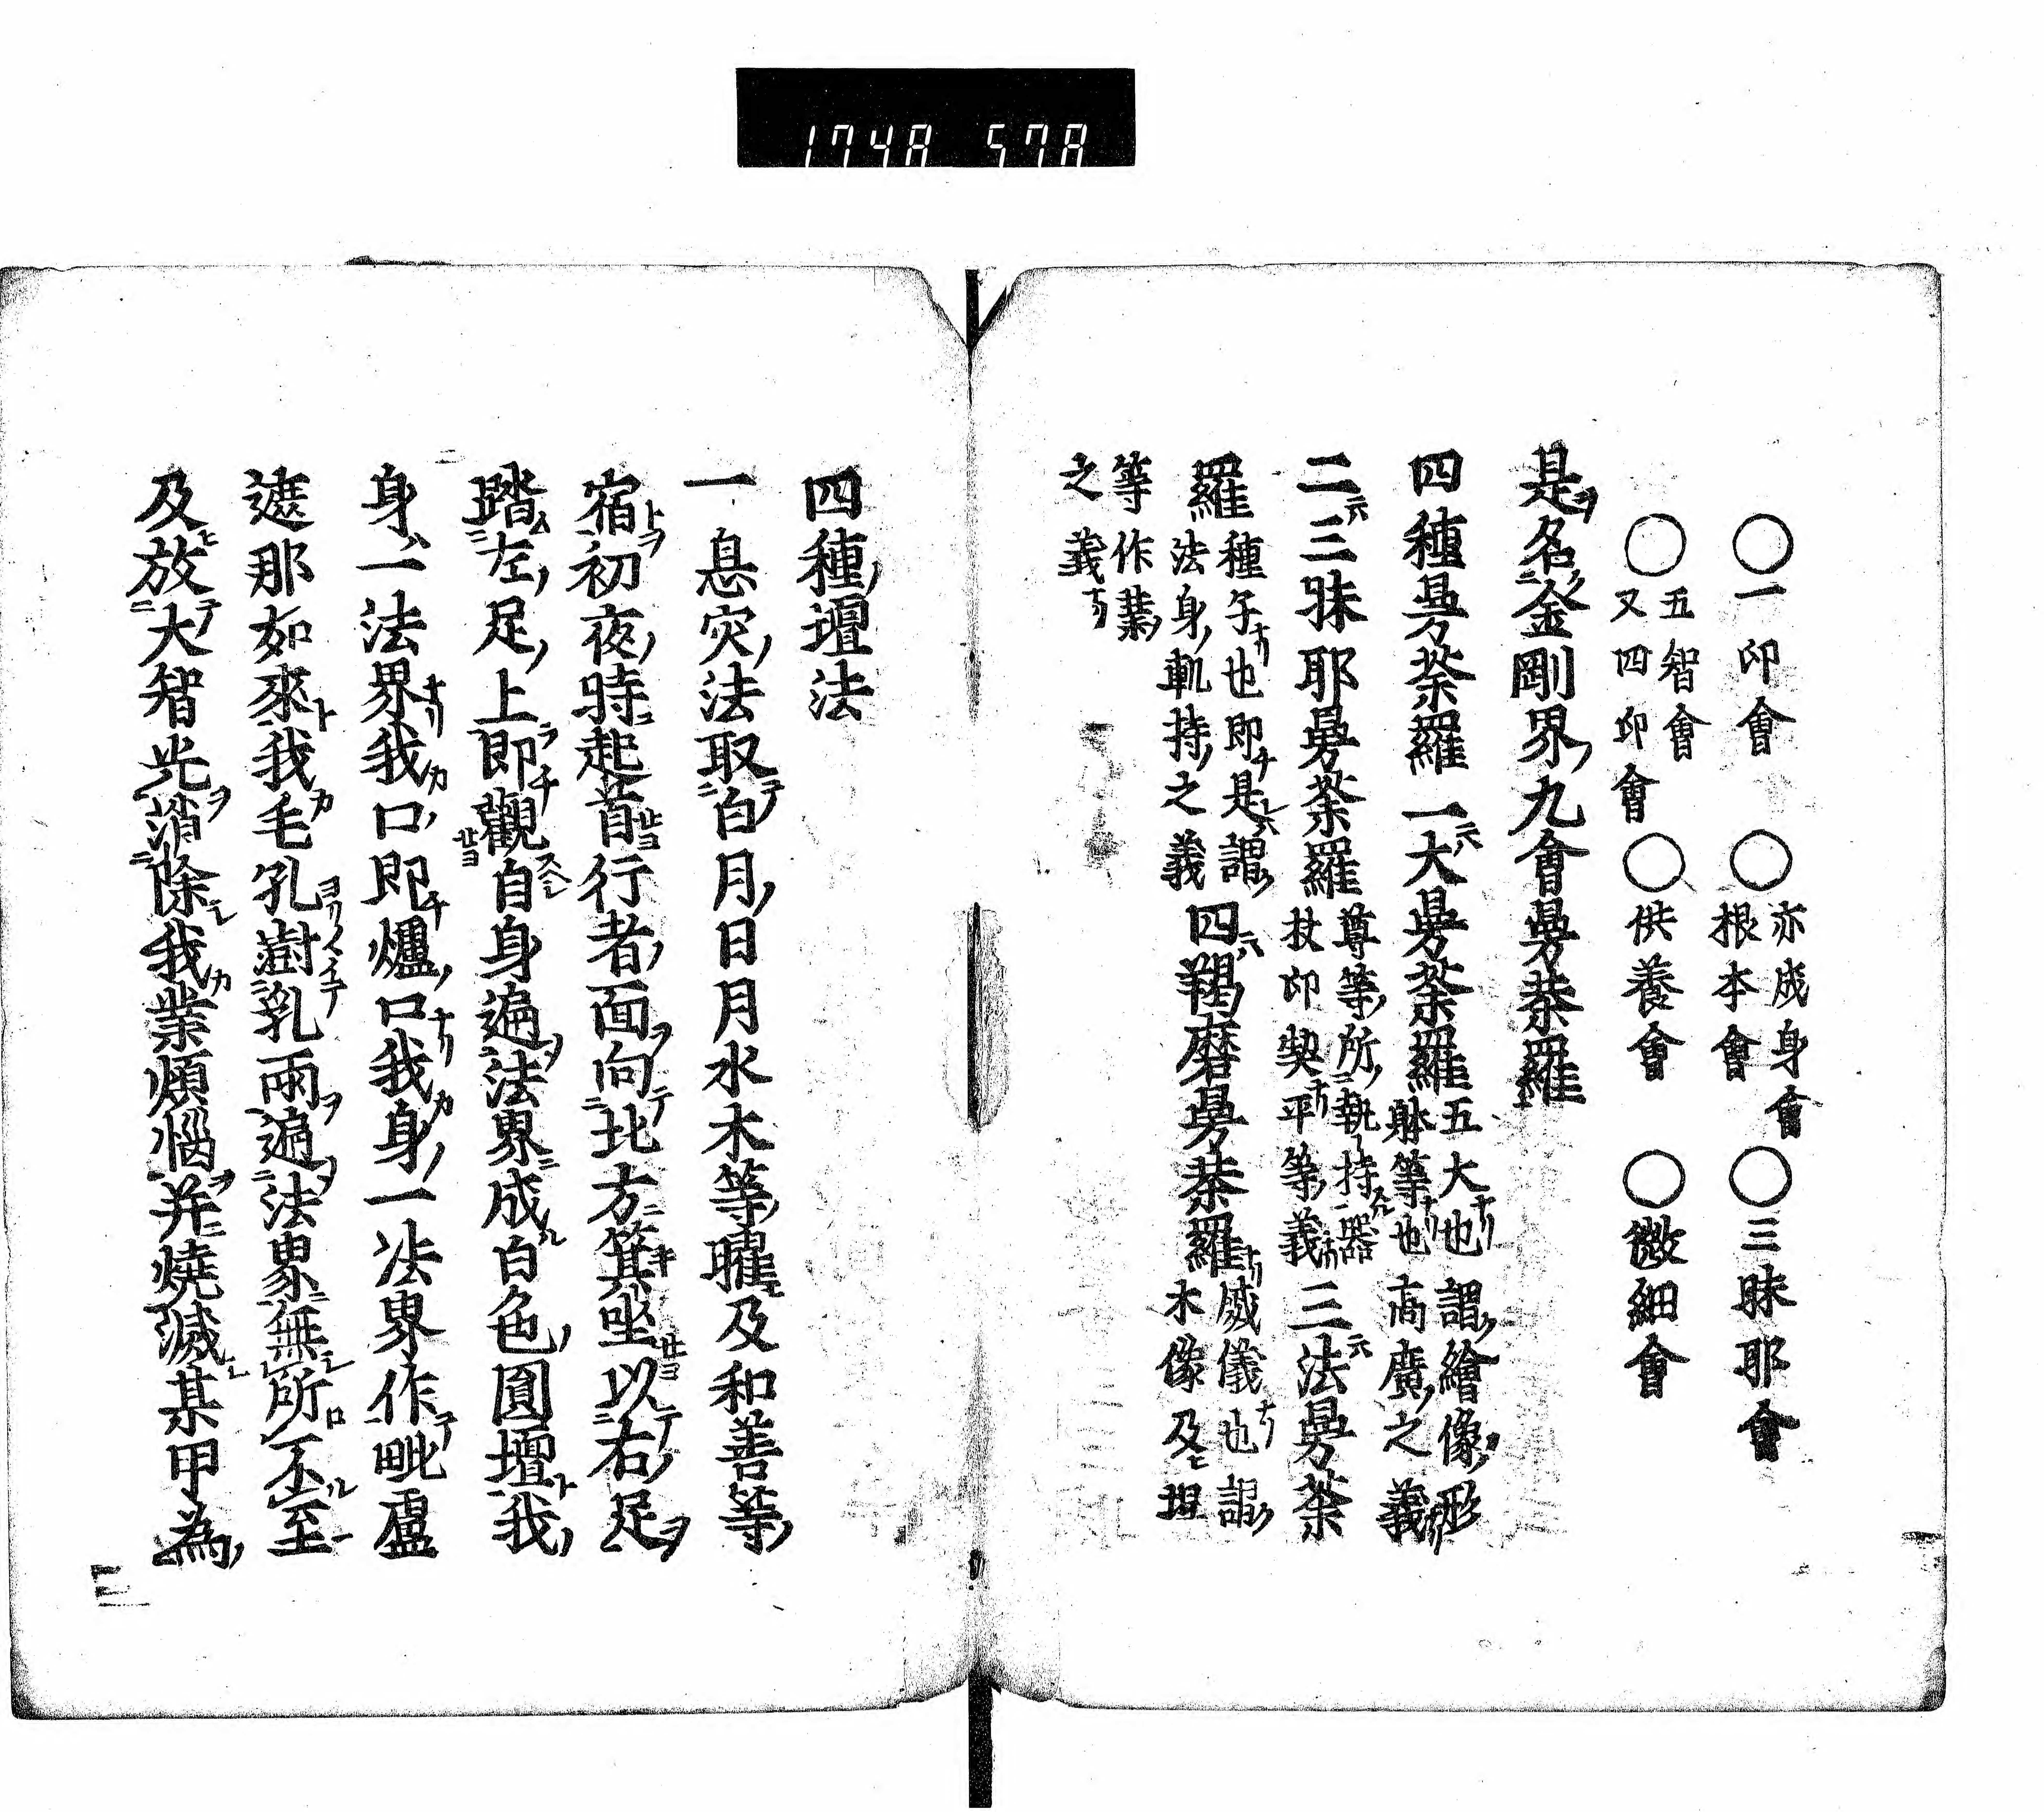 1748 578
○一印會 ○亦成身會根本會 ○三昧耶會
○五智會又四印會 ○供養會 ○微細會
是名金剛界九會曼荼羅
四種曼荼羅 一大曼荼羅 五大也謂繪像形躰等也高廣之義
二三昧耶曼荼羅 尊等所執持器杖印契平等義 三法曼荼
羅 種子也即是謂法身軌持之義 四羯磨曼荼羅 威儀也謂木像及捏
等作業之義
四種壇法
一息灾法取白月日月水木等曜及和善等
宿初夜時起首行者面向北方箕坐以右足
踏左足上即觀自身遍法界成白色圓壇我
身一法界我口即爐口我身一法界作毗盧
遮那如來我毛孔澍乳雨遍法界無所不至
及放大智光消除我業煩惱并燒滅某甲為
三